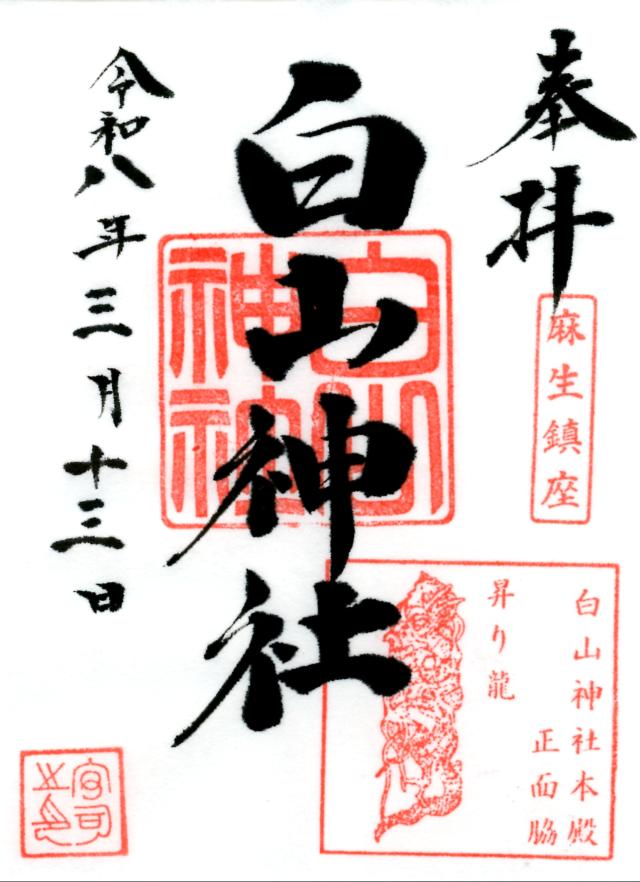 奉拝
麻生鎮座
白山神社
白山神社本殿
正面脇
昇り龍
令和八年三月十三日
宮司之印